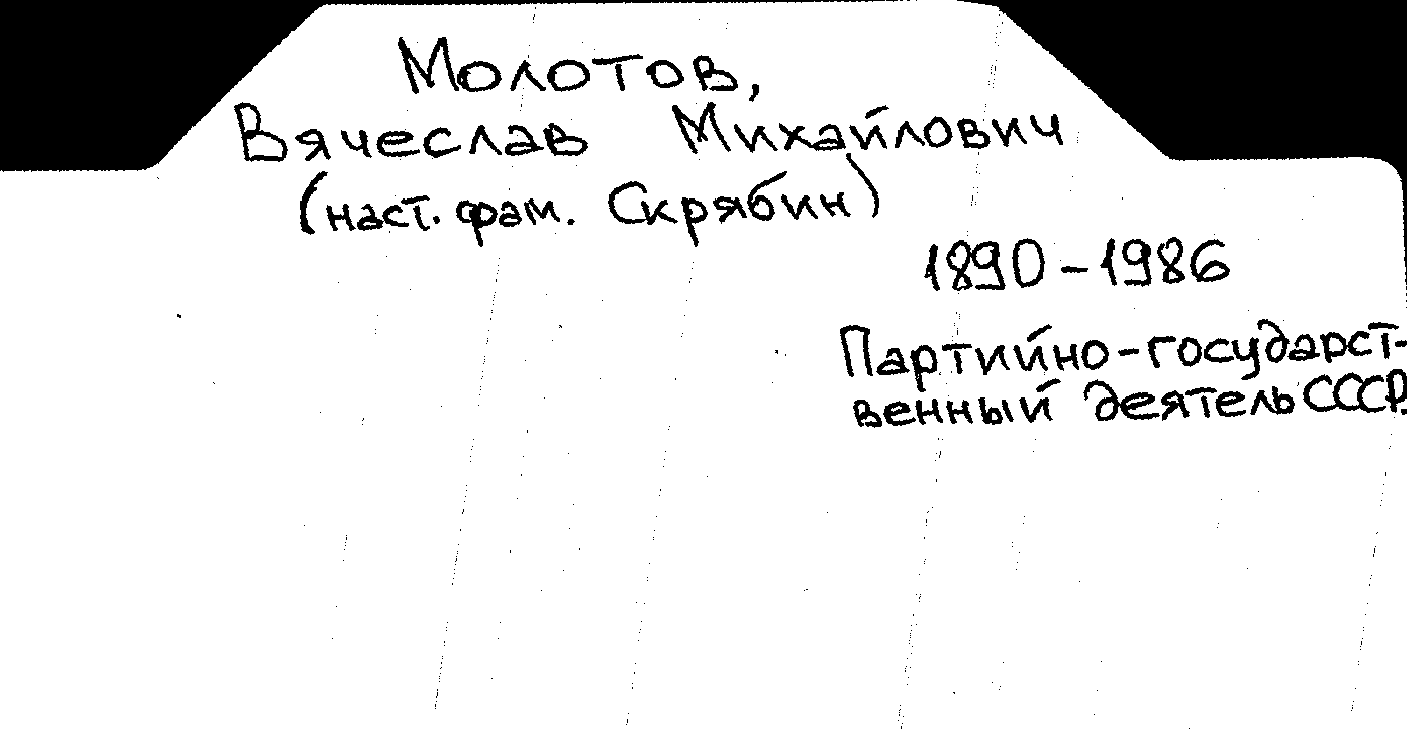 Молотов,
Вячеслав Михайлович
(наст. фам. Скрябин)
1890-1986
Партийно-государст-
венный деятель СССР.